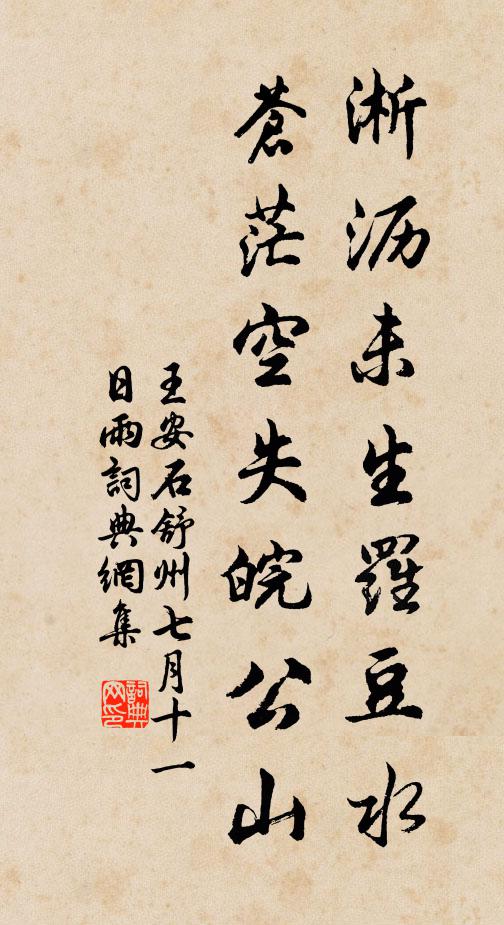 淅沥未生羅豆水
蒼茫空失皖公山
王安石舒州七月十一
日雨詞典網集
詞典网印